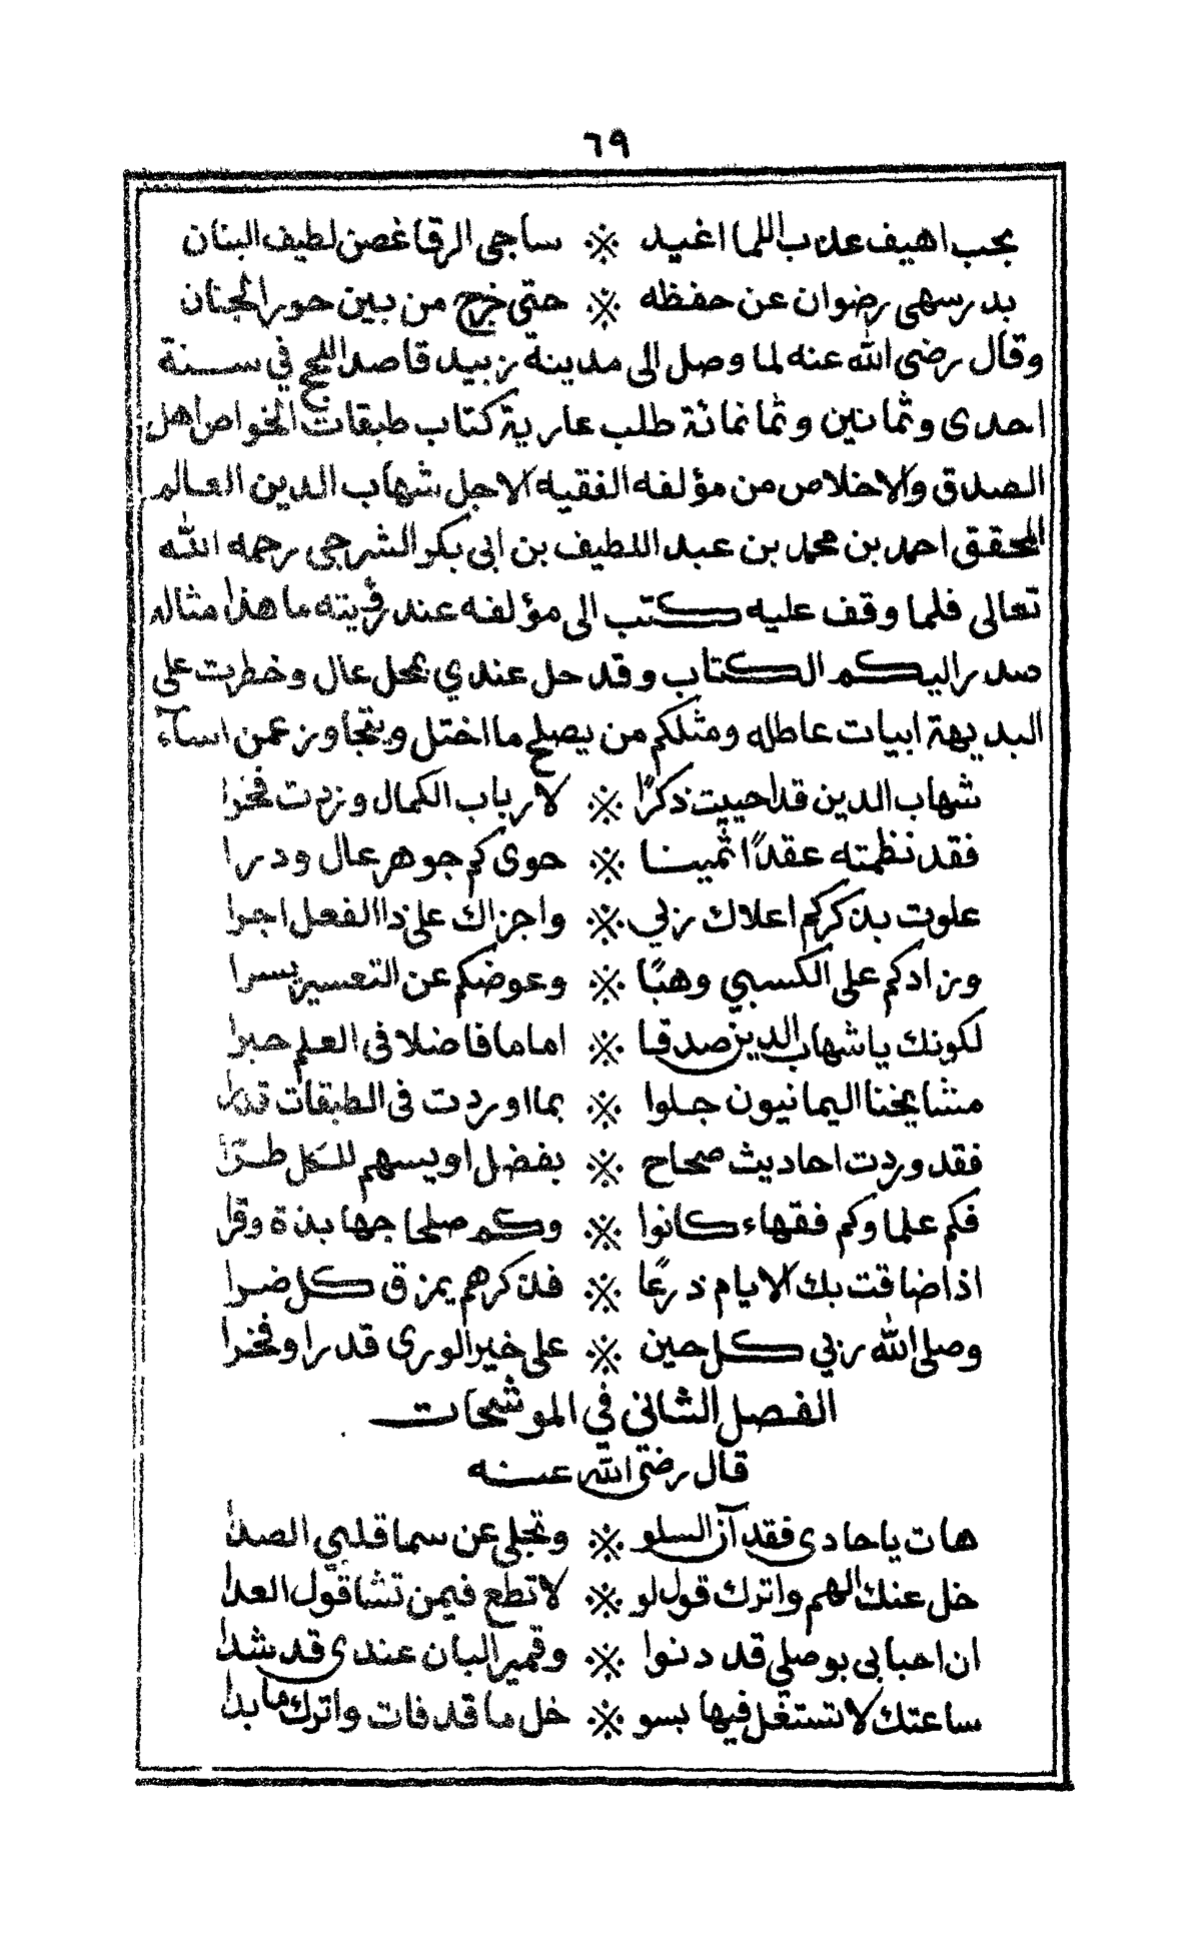 ٦٩
بحب اهيف عذب اللما اغيد ※ ساجي الرقا غصن لطيف البنان
بدر سهى رضوان عن حفظه ※ حتى خرج من بين حور الجنان
وقال رضي الله عنه لما وصل الى مدينة زبيد قاصد اللحج في سنة
احدى وثمانين وثمانمائة طلب عارية كتاب طبقات الخواص اهل
الصدق والاخلاص من مؤلفه الفقيه الاجل شهاب الدين العالم
المحقق احمد بن محمد بن عبد اللطيف بن ابي بكر الشرجي رحمه الله
تعالى فلما وقف عليه كتب الى مؤلفه عند قريته ما هذا مثاله
صدر اليكم الكتاب وقد حل عندي بمحل عال وخطرت على
البديهة ابيات عاطله ومثلكم من يصلح ما اختل ويتجاوز عمن اسآء
شهاب الدين قد احييت ذكرًا ※ لارباب الكمال وزدت فخرا
فقد نظمته عقدًا ثمينا ※ حوى كم جوهر عال ودرا
علوت بذكركم اعلاك ربي ※ واجزاك على ذا الفعل اجرا
وزادكم على الكسبي وهبًا ※ وعوضكم عن التعسير يسرا
لكونك يا شهاب الدين صدقا ※ اماما فاضلا في العلم حبرا
مشايخنا اليمانيون جلوا ※ بما اوردت في الطبقات قدرا
فقد وردت احاديث صحاح ※ بفضل اويسهم للكل طرًا
فكم علما وكم فقهاء كانوا ※ وكم صلحا جهابذة وقرا
اذا ضاقت بك الايام ذرعًا ※ فذكرهم يمزق كل ضرا
وصلى الله ربي كل حين ※ على خير الورى قدرا وفخرا
الفصل الثاني في الموشحات
قال رضي الله عنه
هات يا حادى فقد آن السلو ※ وتجلى عن سما قلبي الصدا
خل عنك الهم واترك قول لو ※ لا تطع فيمن تشا قول العدا
ان احبابي بوصلي قد دنوا ※ وقمير البان عندى قد شدا
ساعتك لا تستغل فيها بسو ※ خل ما قد فات واترك ما بدا